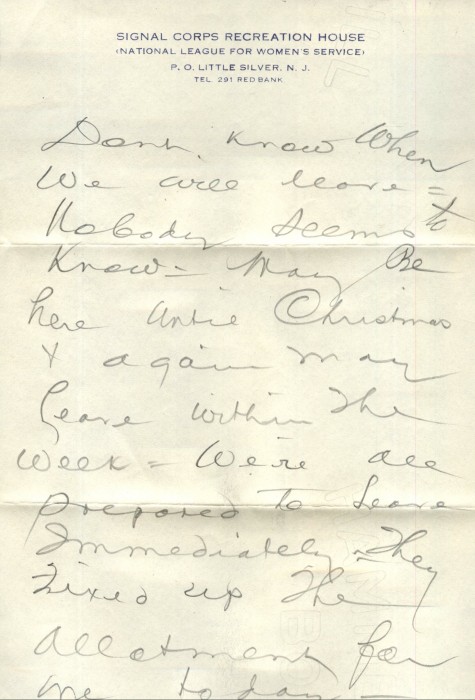 SIGNAL CORPS RECREATION HOUSE
(NATIONAL LEAGUE FOR WOMEN'S SERVICE)
P. O. LITTLE SILVER, N. J.
TEL. 291 RED BANK
Dont know When
We will leave =
Nobody seems to
Know = May Be
here until Christmas
& again may
leave within the
week = We're all
prepared to leave
Immediately = They
fixed up the
allotment for
me to day =